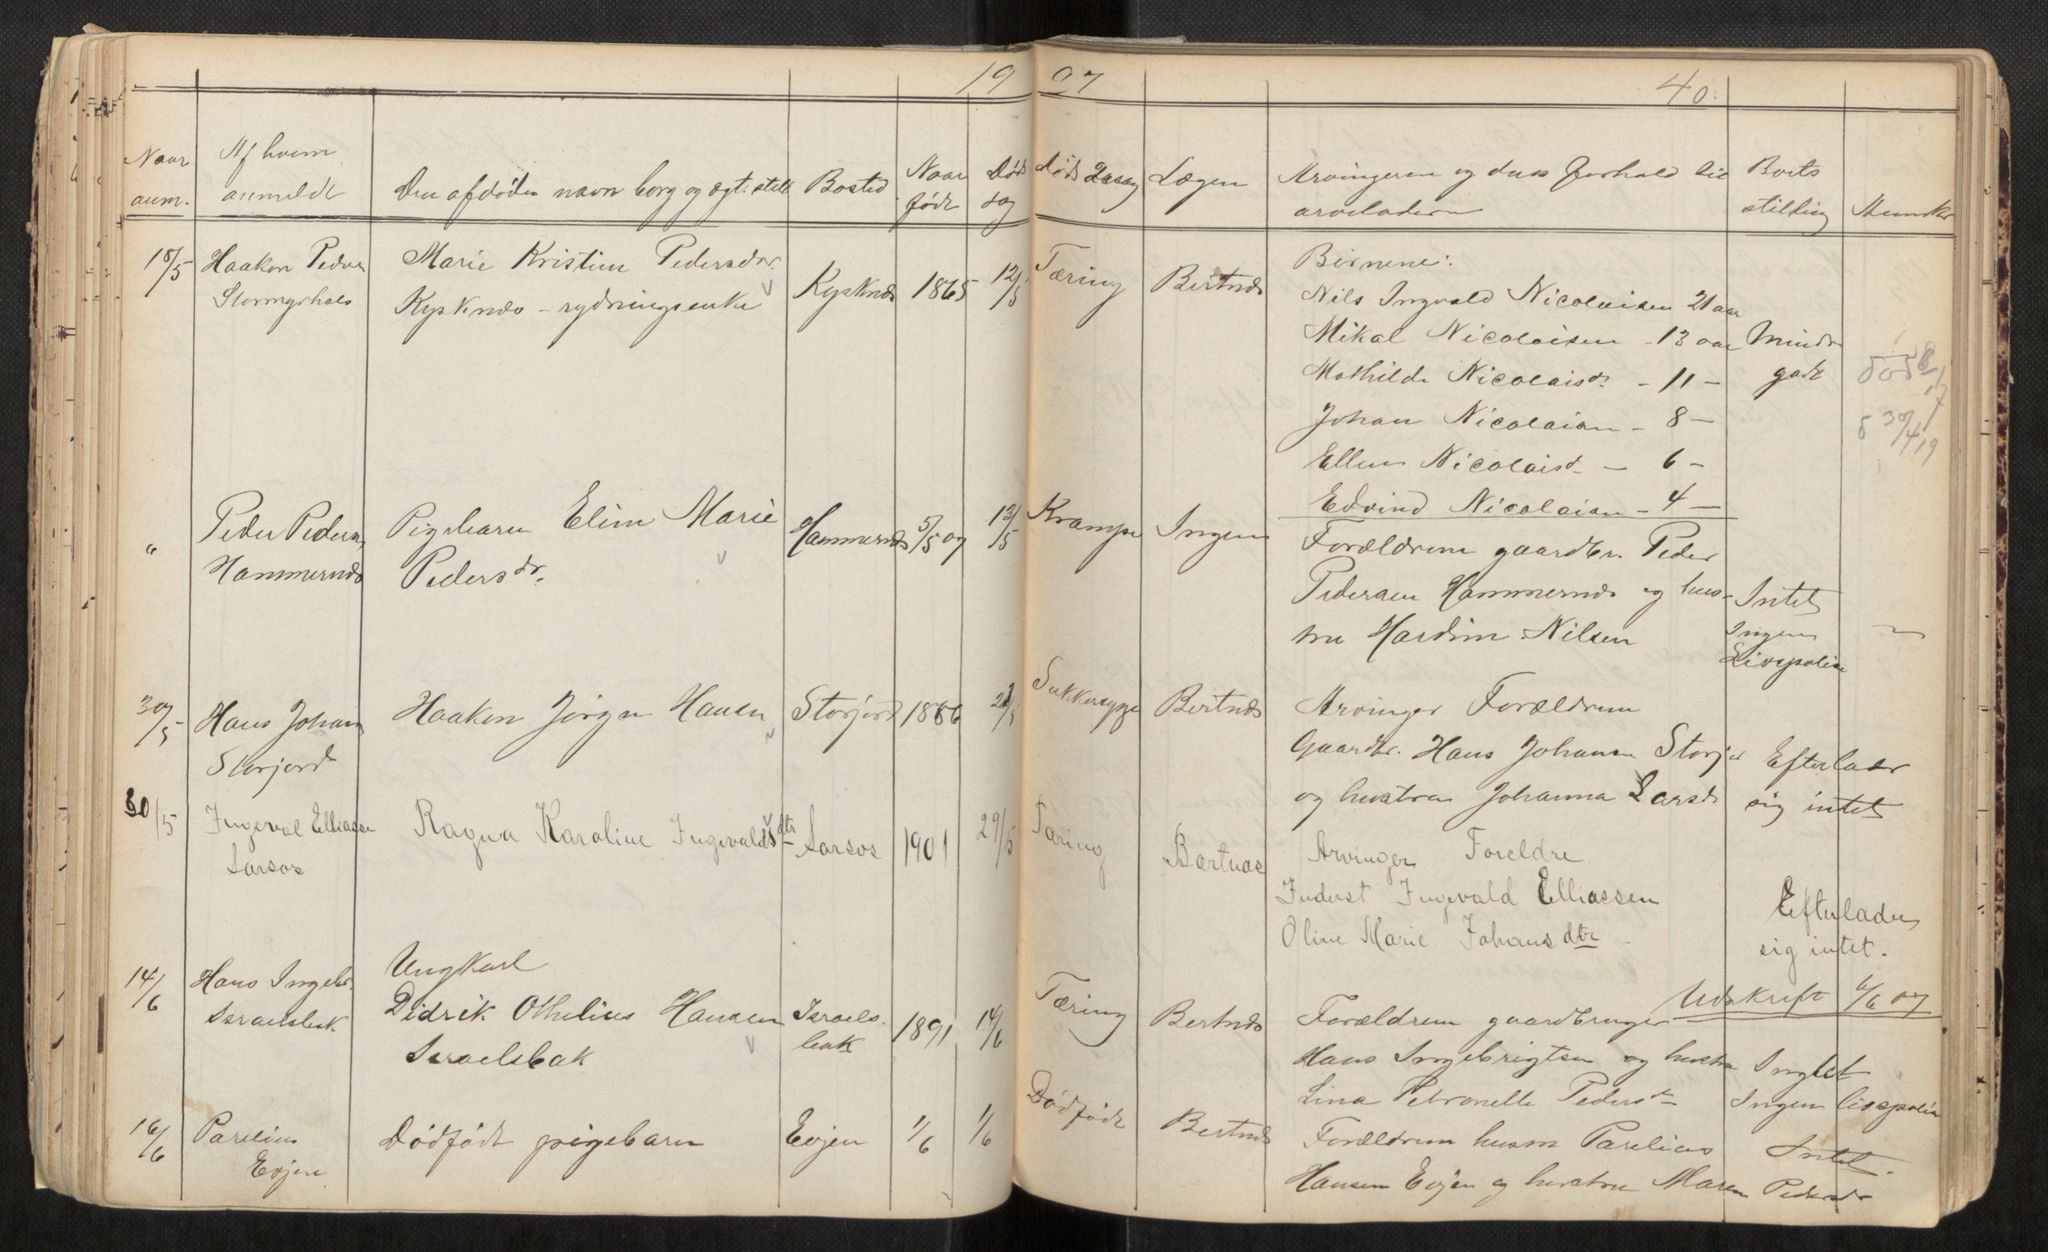 19 07
40.
Naar anm.
Af hvem anmeldt
Den afdødes navn borg og egt. still
Bosted
Naar født
Døds dag
Døds
Lægen
Arvingerne og deres forhold til arveladeren
Borts
18/5
Haakon Peders
Marie Kristine Pedersdr
Kysknes – rydningsenke
Kysknes
1865
12/5
Tæring
Bertnes
Børnene:
Nils Ingvald Nicolaisen 21 aar
Mikal Nicolaisen – 13 aar
Mathilde Nicolaisd. – 11 –
Johan Nicolaisen – 8 –
Ellen Nicolaisd – 6 –
Edvind Nicolaisen – 4 –
Mindre
gode
død
d 30/4 19
"
Peder Peders,
Hammernes
Pigebarn Eline Marie
Pedersdr.
Hammernes
5/5 07
13/5
Krampe
Ingen
Forældrene gaardbr. Peder
Pedersen Hammernes og hus-
tru Hardine Nilsen
Intet
Ingen
Livspolise
30/5
Hans Johans
Storjord
Haakon Jørgen Hansen
Storjord
1886
Sukkersyge
Bertnes
Arvinger Forældrene
Gaardbr. Hans Johansen Storj
og hustru Johanna Larsd
Efterlader
sig intet
30/5
Ingeval Elliasse
Sarsos
Ragna Karoline Ingevaldsdtr
Sarsos
1901
29/5
Tæring
Bertnæs
Arvinger Foreldre
Inderst Ingevald Elliassen
Oline Marie Johansdtr
Efterlader
sig intet.
14/6
Hans Ingebr.
Israelsbak
Ungkarl
Didrik Othelius Hansen
Israelsbak
Israels
bak
1891
14/6
Tæring
Bertnes
Udskrift 6/6 07
Forældrene gaardbruger
Hans Ingebrigtsen og hustru
Lina Petronelle Pedersd
Intet
Ingen livspolis
16/6
Parelius
Evjen
Dødfødt pigebarn
Evjen
1/6
1/6
Dødfødt
Bertnes
Forældrene husm Parelius
Hansen Evjen og hustru Maren Pedersdr
Intet.